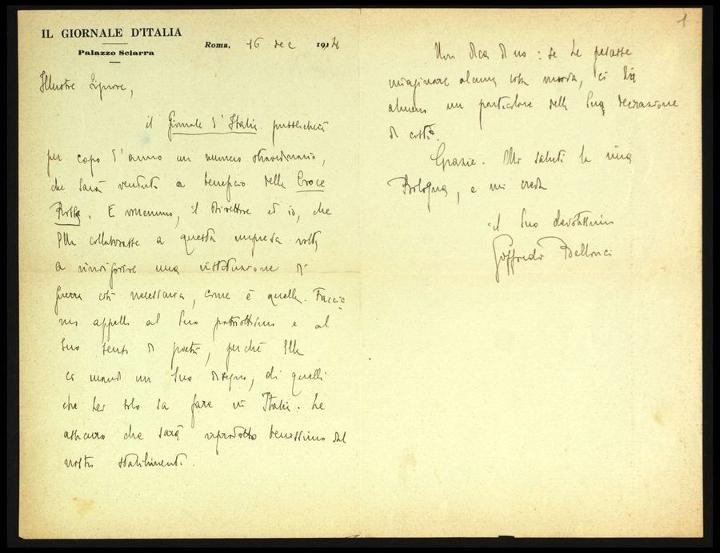 IL GIORNALE D'ITALIA
Palazzo Sciarra
Roma, 16 dec 1914
Illustre Signore,
il Giornale d'Italia pubblicherà
per capo d'anno un numero straordinario,
che sarà venduto a beneficio della Croce
Rossa. E vorremmo, il Direttore ed io, che
Ella collaborasse a questa impresa volta
a rinvigorire una istituzione di
guerra così necessaria, come è quella. Faccia-
mo appello al Suo patriottismo e al
Suo senso di poeta, perché Ella
ci mandi un Suo disegno, di quelli
che Lei solo sa fare in Italia. Le
assicuro che sarà riprodotto benissimo dal
nostro stabilimento.
1
Non dica di no: se Le pesasse
immaginare alcuna cosa nuova, ci dia
almeno un particolare della Sua decorazione
di costì.
Grazie. Mi saluti la mia
Bologna, e mi creda
il Suo devotissimo
Goffredo Bellonci